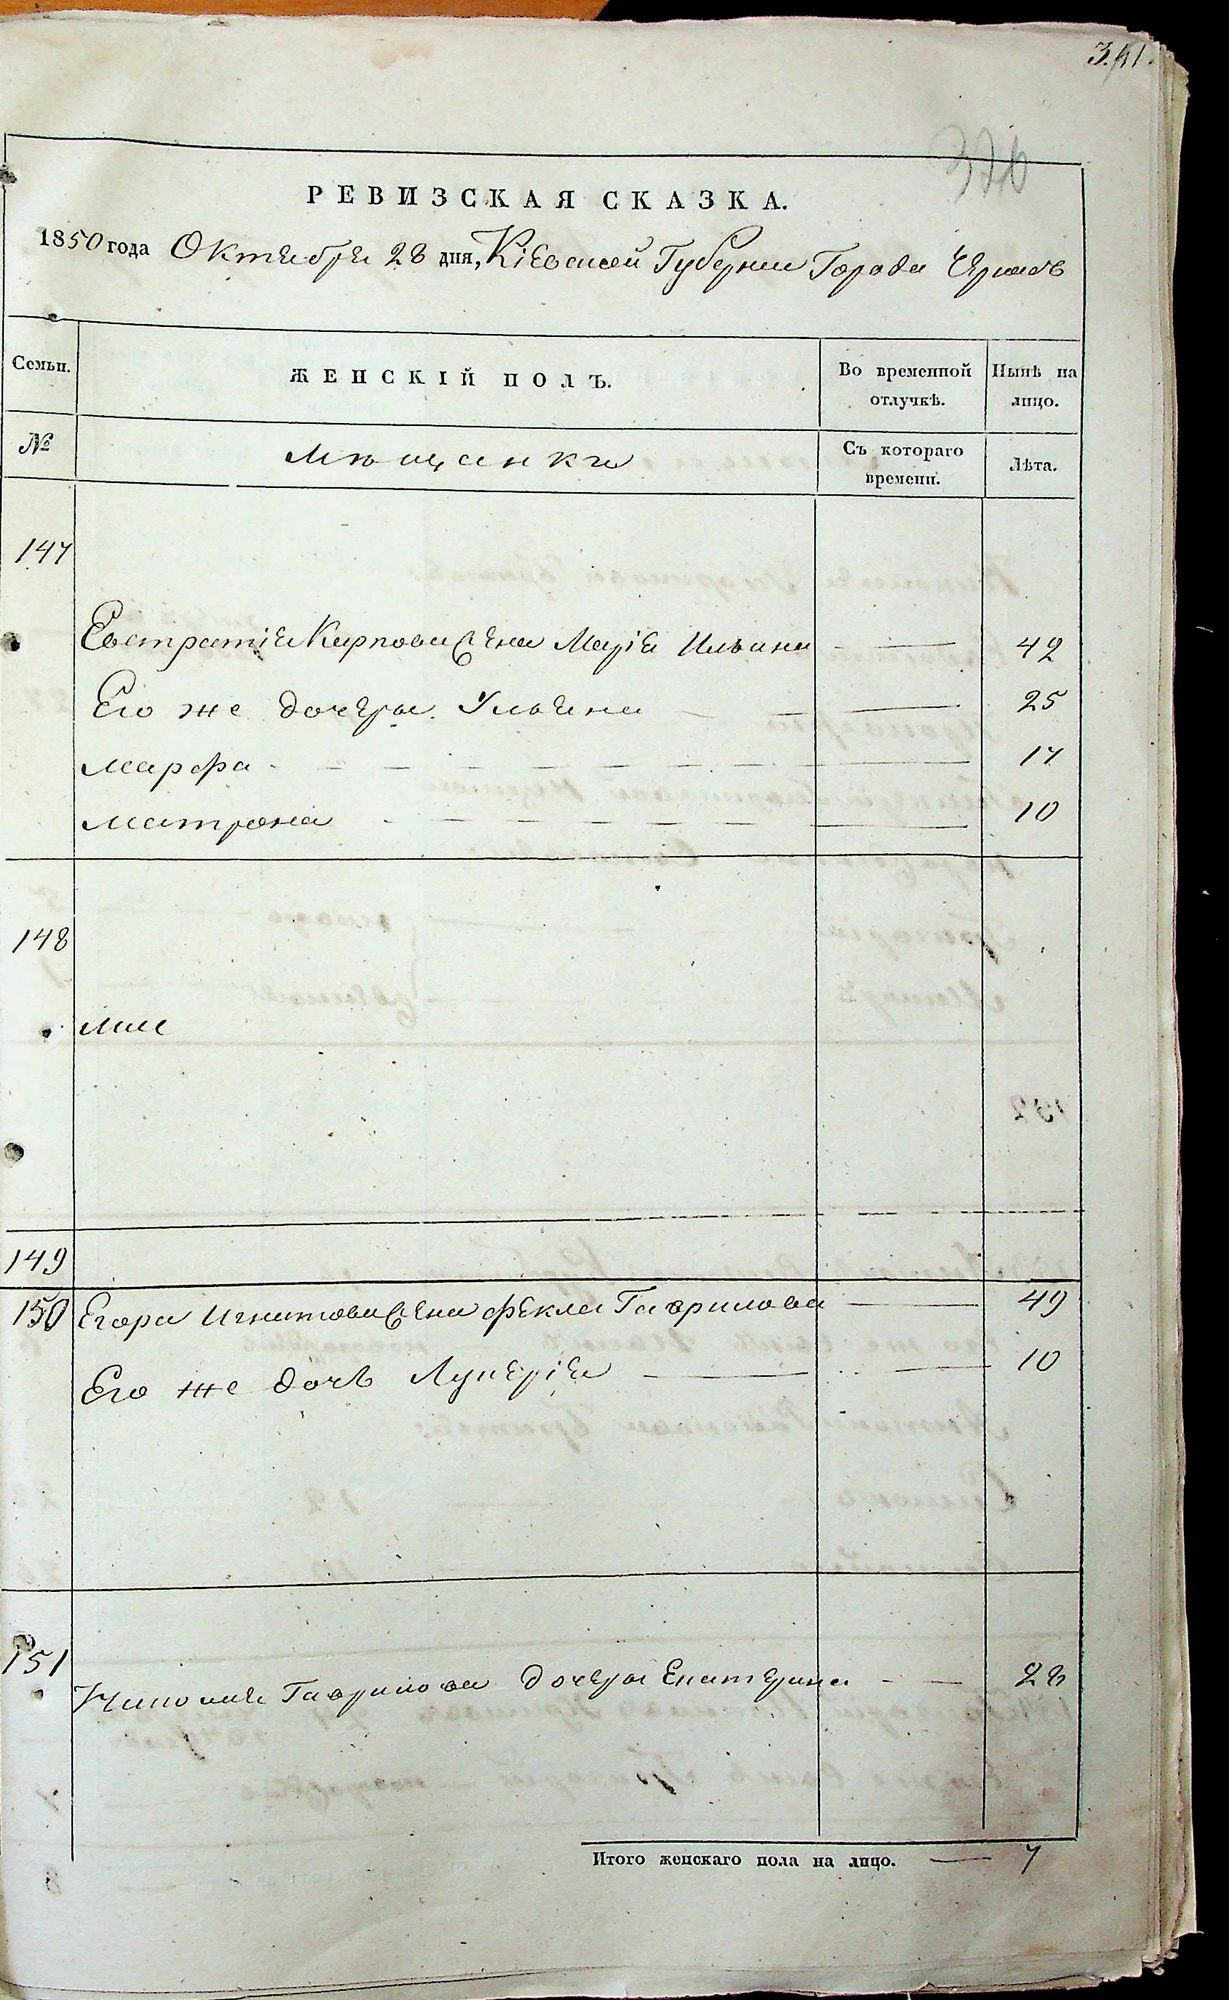 341.
326
РЕВИЗСКАЯ СКАЗКА.
1850 года Октября 28 дня, Кіевской Губернии Города Черкасъ
Семьи.
ЖЕНСКІЙ ПОЛЪ.
Во временной отлучкѣ.
Нынѣ на лицо.
№
Мѣщанки
Съ котораго времени.
Лѣта.
147
Евстратія Карпова жена Марія Ильина 42
Его же дочери Ульяна 25
Марфа 17
Матрона 10
148
149
150 Егора Игнатова жена Фекла Гаврилова 49
Его же дочь Лукерія 10
151
Гаврилова дочери Екатерина 28
Итого женскаго пола на лицо. 7